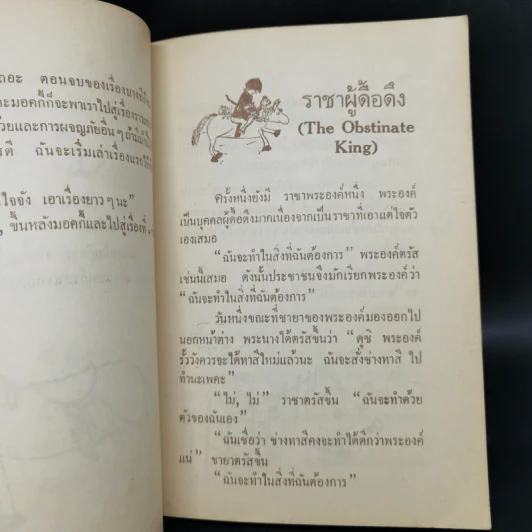 ถอะ ตอนจบของเรื่องบาง
ละมอคกี้ก็จะพาเราไปสู่เรื่อง
วยและการผจญภัยอื่นๆ
รดี ฉันจะเริ่มเล่าเรื่องแรก
ใจจัง เอาเรื่องยาวๆนะ”
, ขึ้นหลังมอคกี้และไปสู่เรื่องที่
ราชาผู้ดื้อดึง
(The Obstinate
King)
ครั้งหนึ่งยังมี ราชาพระองค์หนึ่ง พระองค์
เป็นบุคคลผู้ดื้อดึงมากเนื่องจากเป็นราชาที่เอาแต่ใจตัว
เองเสมอ
“ฉันจะทำในสิ่งที่ฉันต้องการ” พระองค์ตรัส
เช่นนี้เสมอ ดังนั้นประชาชนจึงมักเรียกพระองค์ว่า
“ฉันจะทำในสิ่งที่ฉันต้องการ”
วันหนึ่งขณะที่ชายาของพระองค์มองออกไป
นอกหน้าต่าง พระนางได้ตรัสขึ้นว่า “ดูซิ พระองค์
รั้ววังควรจะได้ทาสีใหม่แล้วนะ ฉันจะสั่งช่างทาสี ไป
ทำนะเพคะ”
“ไม่, ไม่” ราชาตรัสขึ้น “ฉันจะทำด้วย
ตัวของฉันเอง”
“ฉันเชื่อว่า ช่างทาสีคงจะทำได้ดีกว่าพระองค์
แน่” ชายาตรัสขึ้น
“ฉันจะทำในสิ่งที่ฉันต้องการ”